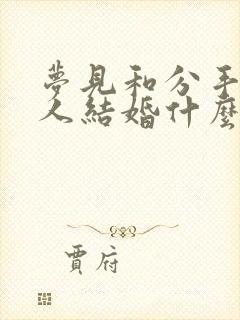 夢見和分手
人結婚什麼
賈府